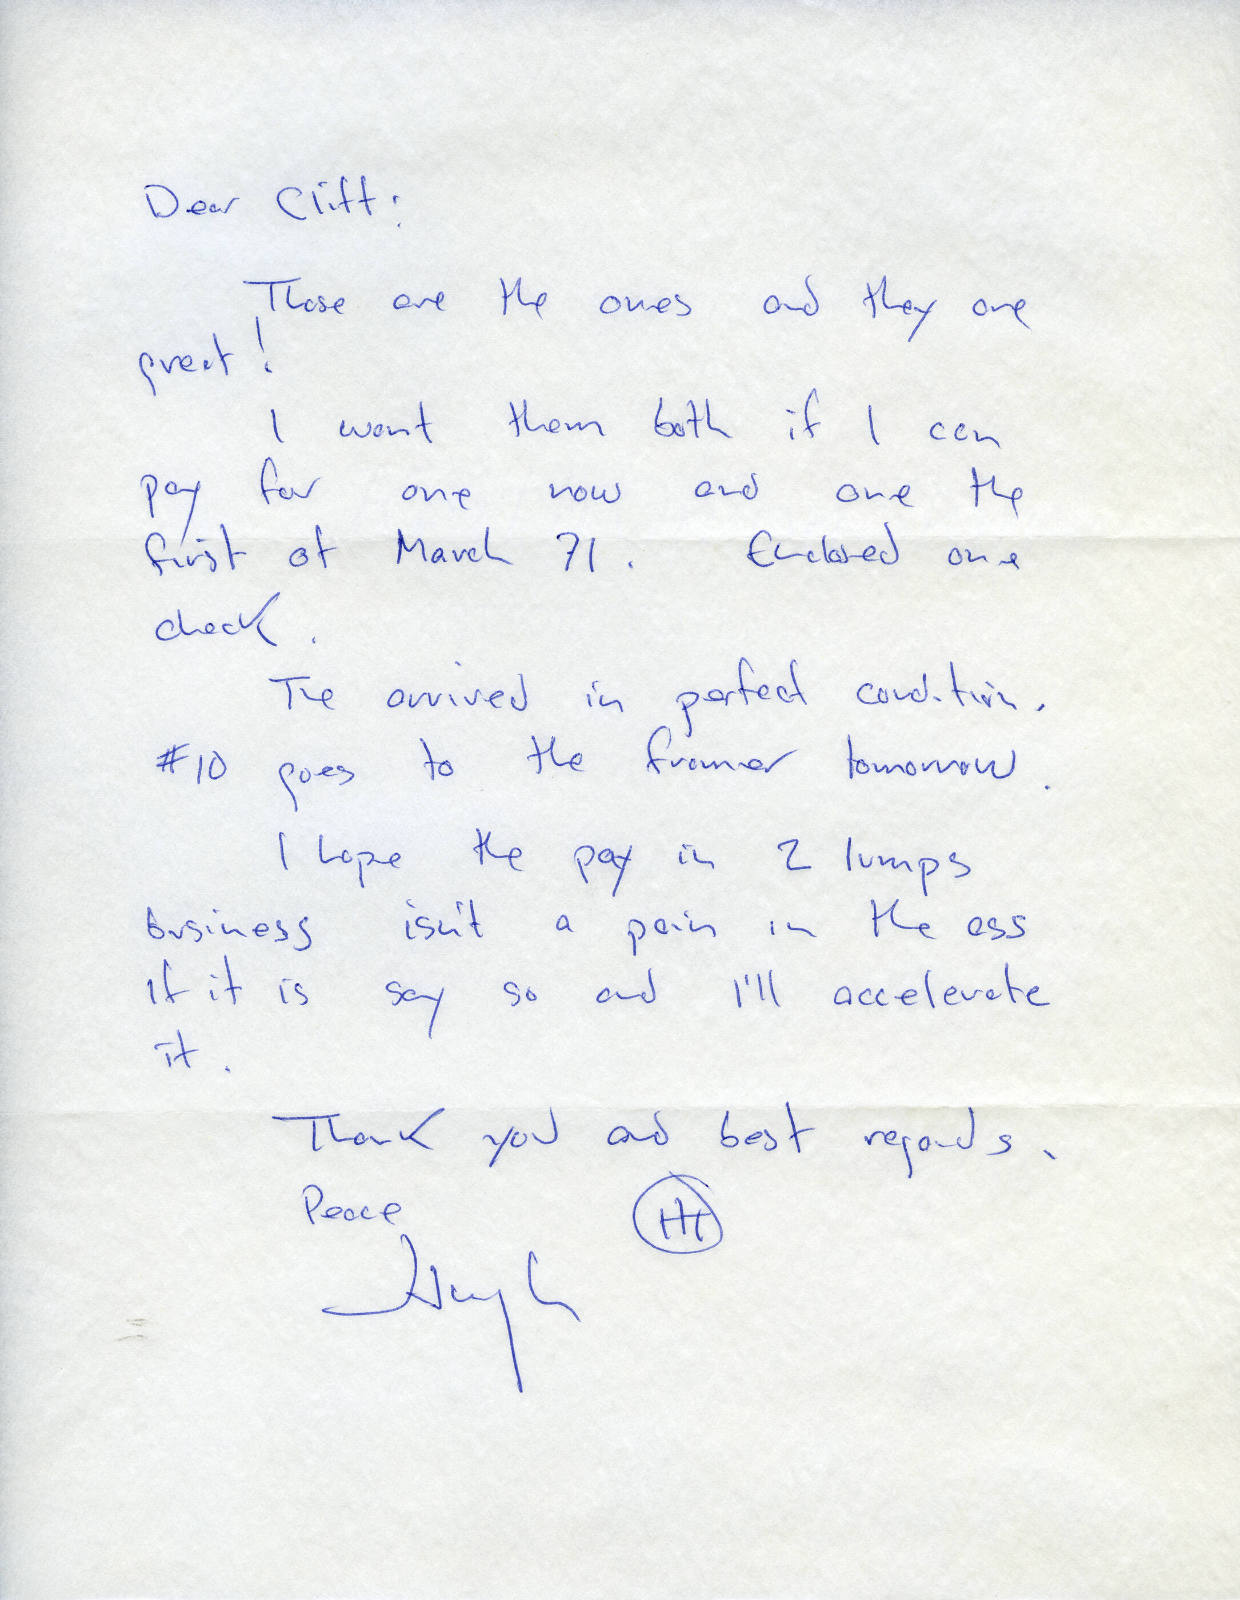 Dear Cliff:
Those are the ones and they are
great!
I want them both if I can
pay for one now and one the
first of March 71. Enclosed one
check.
The arrived in perfect condition.
#10 goes to the framer tomorrow.
I hope the pay in 2 lumps
business isn't a pain in the ass
If it is say so and I'll accelerate
it.
Thank you and best regards.
Peace
Hugh